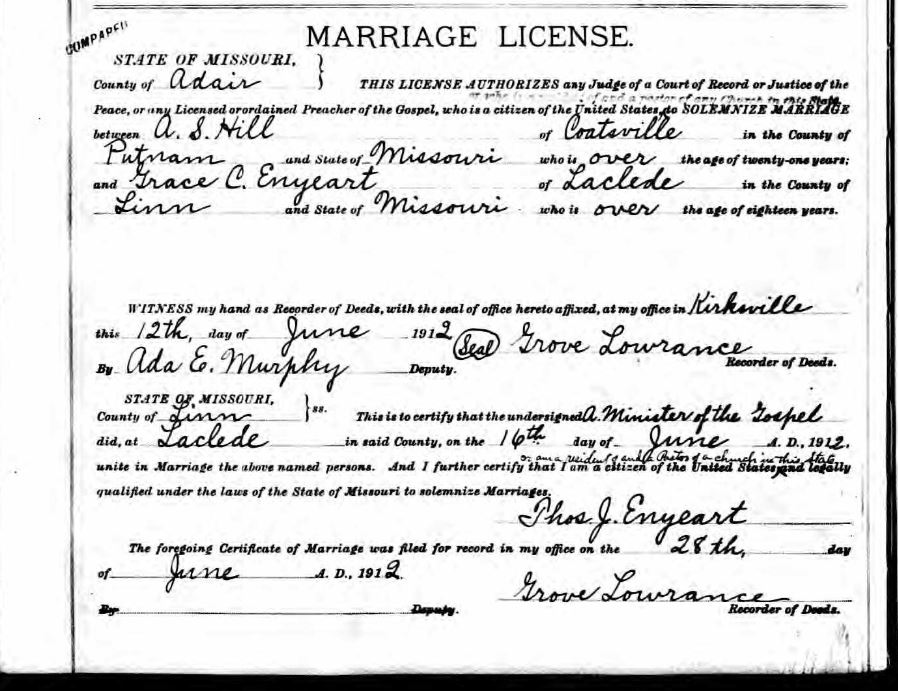 COMPARED
MARRIAGE LICENSE.
STATE OF MISSOURI,
County of Adair } THIS LICENSE AUTHORIZES any Judge of a Court of Record or Justice of the
or who is a resident of and a pastor of any Church in this State
Peace, or any Licensed or ordained Preacher of the Gospel, who is a citizen of the United States, to SOLEMNIZE MARRIAGE
between A. S. Hill of Coatsville in the County of
Putnam and State of Missouri who is over the age of twenty-one years;
and Grace C. Enyeart of Laclede in the County of
Linn and State of Missouri who is over the age of eighteen years.
WITNESS my hand as Recorder of Deeds, with the seal of office hereto affixed, at my office in Kirksville
this 12th, day of June 1912 (Seal) Grove Lowrance
By Ada E. Murphy Deputy. Recorder of Deeds.
STATE OF MISSOURI,
County of Linn } ss. This is to certify that the undersigned A. Minister of the Gospel
did, at Laclede in said County, on the 16th day of June A. D., 1912.
or am a resident of and a Pastor of a church in this State
unite in Marriage the above named persons. And I further certify that I am a citizen of the United States, and legally
qualified under the laws of the State of Missouri to solemnize Marriages.
Thos. J. Enyeart
The foregoing Certificate of Marriage was filed for record in my office on the 28th, day
of June A. D., 1912.
Grove Lowrance
By Deputy. Recorder of Deeds.